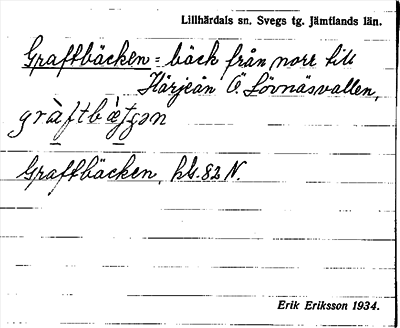 Lillhärdals sn. Svegs tg. Jämtlands län.
Graftbäcken = bäck från norr till
Härjeån Ö Lövnäsvallen,
gràftbæ̀tʃən
Graftbäcken, kbl. 82 N.
Erik Eriksson 1934.